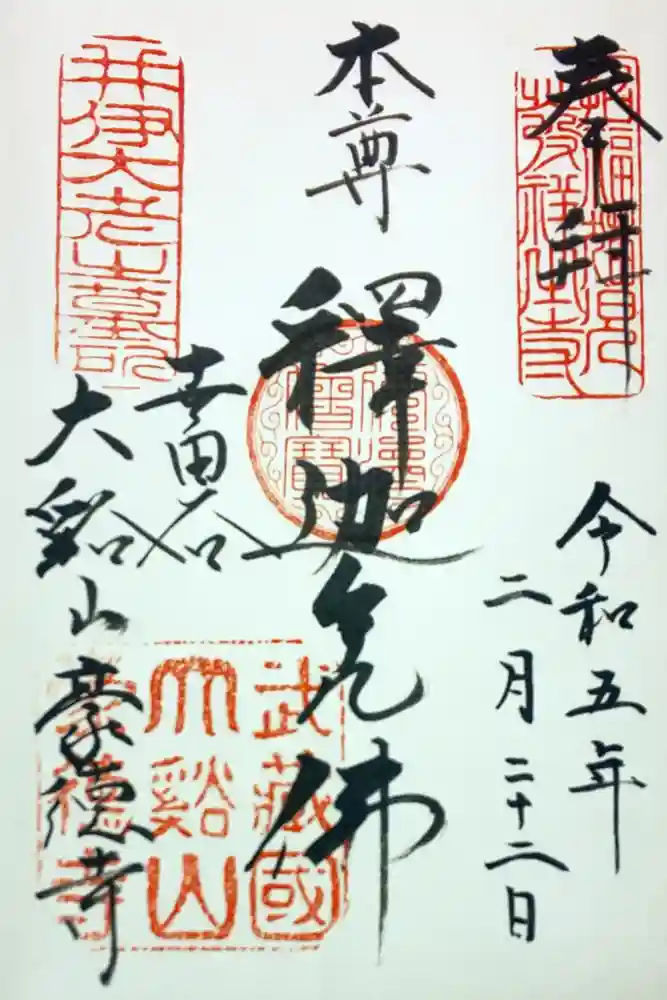 奉拝
招福猫兒
發祥之寺
令和五年
二月二十二日
本尊
釋迦牟尼佛
世田谷
大谿山豪徳寺
井伊大老之墓所
武藏國
大谿山
豪德寺